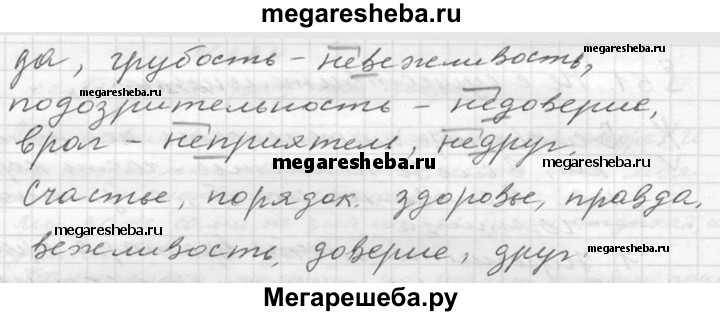 megaresheba.ru
да, грубость – невежливость,
megaresheba.ru
подозрительность – недоверие,
megaresheba.ru
враг – неприятель, недруг.
megaresheba.ru
megaresheba.ru
Счастье, порядок. здоровье, правда,
megaresheba.ru
вежливость, доверие, друг.
megaresheba.ru
Мегарешеба.ру